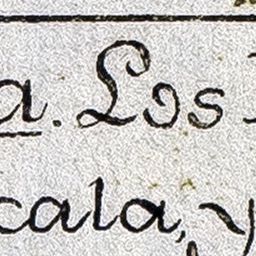 a. Los
cala, y